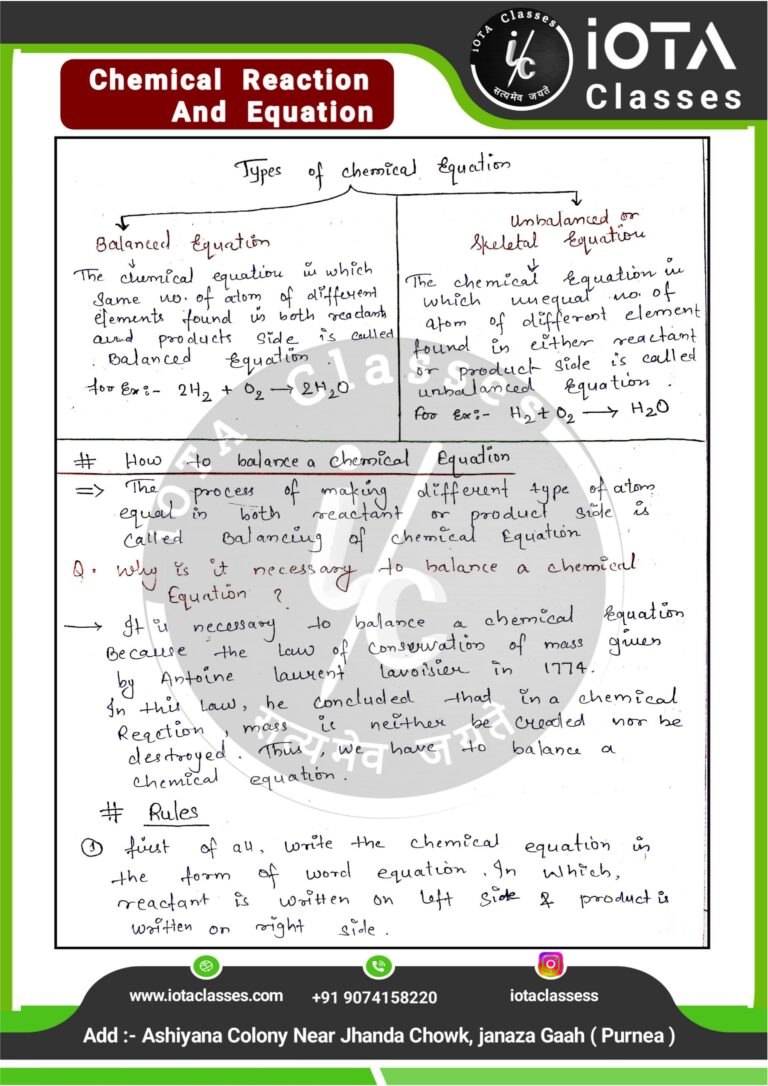 iOTA Classes
i/C
सत्यमेव जयते
iOTA
Classes
Chemical Reaction
And Equation
Types of chemical Equation
Balanced Equation
The chemical equation in which
same no. of atom of different
elements found in both reactant
and products side is called
Balanced Equation.
for Ex:- 2H₂ + O₂ → 2H₂O
Unbalanced or
Skeletal Equation
The chemical Equation in
which unequal no. of
atom of different element
found in either reactant
or product side is called
unbalanced Equation.
for Ex:- H₂ + O₂ → H₂O
# How to balance a chemical Equation
=> The process of making different type of atom
equal in both reactant or product side is
called Balancing of chemical Equation
Q. Why is it necessary to balance a chemical
Equation ?
→ It is necessary to balance a chemical Equation
Because the Law of conservation of mass given
by Antoine laurent lavoisier in 1774.
In this Law, he concluded that in a chemical
Reaction, mass is neither be created nor be
destroyed. Thus, we have to balance a
chemical equation.
# Rules
① first of all, write the chemical equation in
the form of word equation. In which,
reactant is written on left side & product is
written on right side.
iOTA Classes
i/C
सत्यमेव जयते
www.iotaclasses.com
+91 9074158220
iotaclassess
Add :- Ashiyana Colony Near Jhanda Chowk, janaza Gaah ( Purnea )